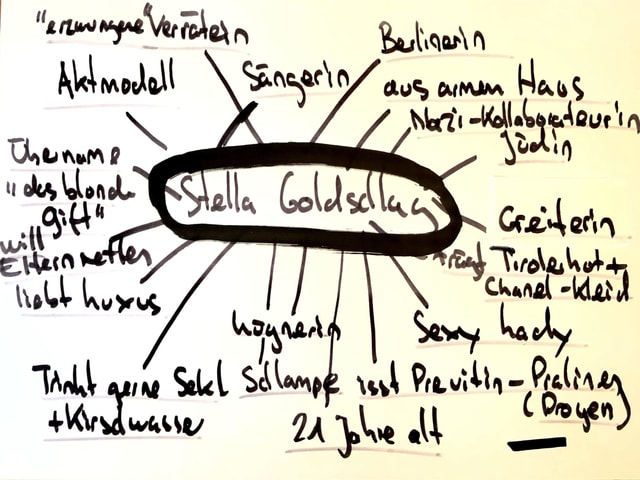 "erzwungene" Verräterin
Berlinerin
Aktmodell
Sängerin
aus armem Haus
Nazi-Kollaborateurin
Jüdin
Übername
"das blonde
Gift"
Stella Goldschlag
Greiferin
will
Eltern retten
trägt Tirolerhut +
Chanel-Kleid
liebt Luxus
Lügnerin
Sexy Lady
Trinkt gerne Sekt
+ Kirschwasser
Schlampe
isst Pervitin-Pralinen
(Drogen)
21 Jahre alt